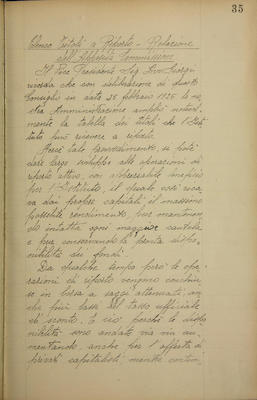 35
Elenco Titoli a Riporto - Relazione
dell'Apposita Commissione
Il Vice Presidente Sig. Avv.
ricorda che con deliberazione di questo
Consiglio in data 25 febbraio 1925 la no
stra Amministrazione ampliò notevol
mente la tabella dei titoli che l'Isti
tuto può ricevere a riporto.
Mercè tale provvedimento si potè
dare largo sviluppo alle operazioni di
riporto attivo, con
per l'Istituto, il quale così rica
va dai propri capitali il massimo
possibile rendimento, pur mantenen
do intatta ogni maggior cautela
e pur conservando la pronta dispo
nibilità dei fondi.
Da qualche tempo però le ope
razioni di riporto vengono conchiu
se in borsa a saggi attenuati, an
che più bassi del tasso ufficiale
di sconto. E ciò perchè le dispo
nibilità sono andate via via au
mentando, anche per l'offerta di
privati capitalisti mentre contem